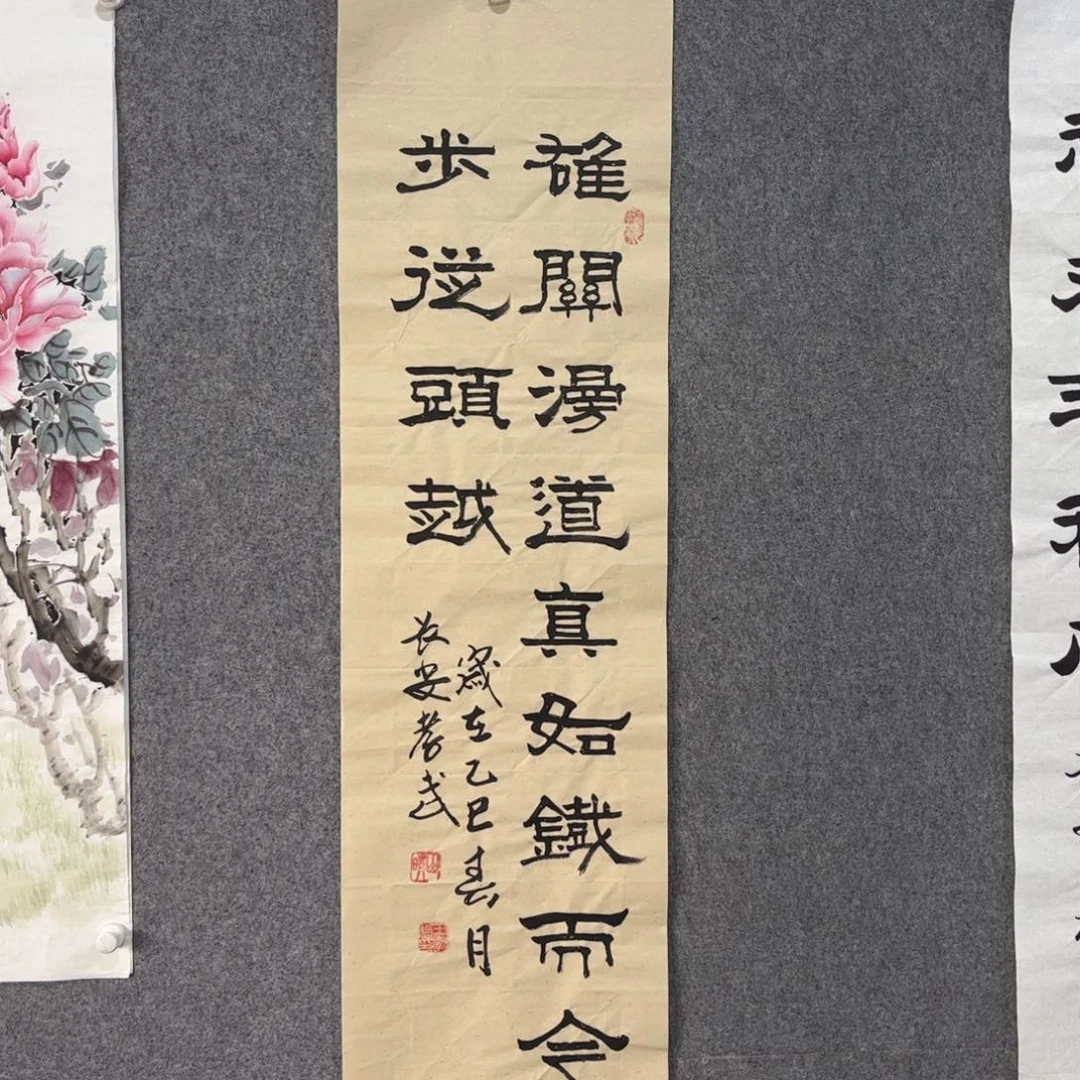 雄關漫道真如鐵而今
步從頭越
歲在乙巳春月
长安孝武